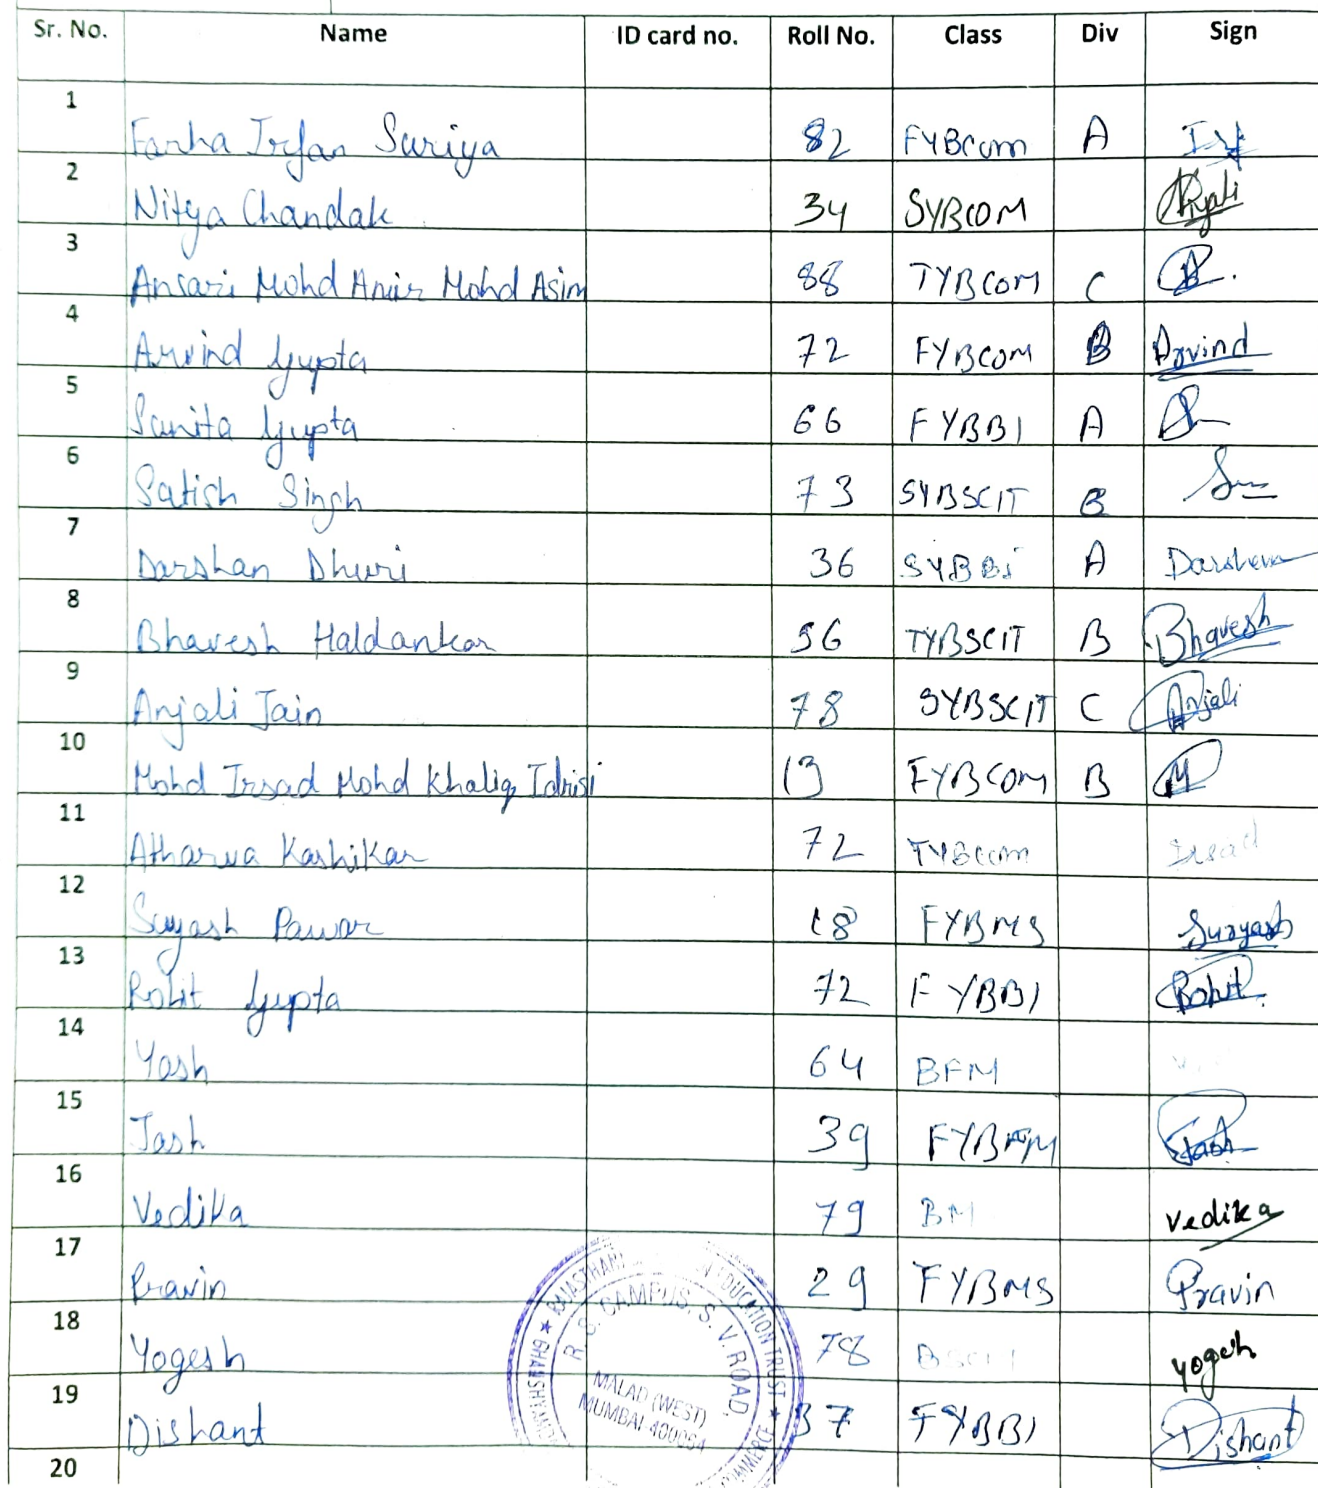 Sr. No. Name ID card no. Roll No. Class Div Sign
1 Farha Irfan Suriya 82 FYBCom A Irf
2 Nitya Chandak 34 SYBCOM
3 Ansari Mohd Amir Mohd Asim 88 TYBCOM C
4 Arvind Gupta 72 FYBCOM B Arvind
5 Sanita Gupta 66 FYBBI A
6 Satish Singh 73 SYBSCIT B
7 Darshan Dhuri 36 SYBBi A Darshan
8 Bhavesh Haldankar 56 TYBSCIT B Bhavesh
9 Anjali Jain 78 SYBSCIT C Anjali
10 Mohd Irsad Mohd Khaliq Idrisi 13 FYBCOM B M
11 Atharva Kashikar 72 TYBCom Irsad
12 Suyash Pawar 18 FYBMS Suryash
13 Rohit Gupta 72 FYBBI Rohit
14 Yash 64 BFM
15 Jash 39 FYBFM Jash
16 Vedika 79 BM Vedika
17 Pravin 29 FYBMS Pravin
18 Yogesh 78 Yogesh
19 Dishant 37 FYBBI Dishant
20
R. S. CAMPUS, S. V. ROAD,
MALAD (WEST)
MUMBAI-400064
EDUCATION TRUST